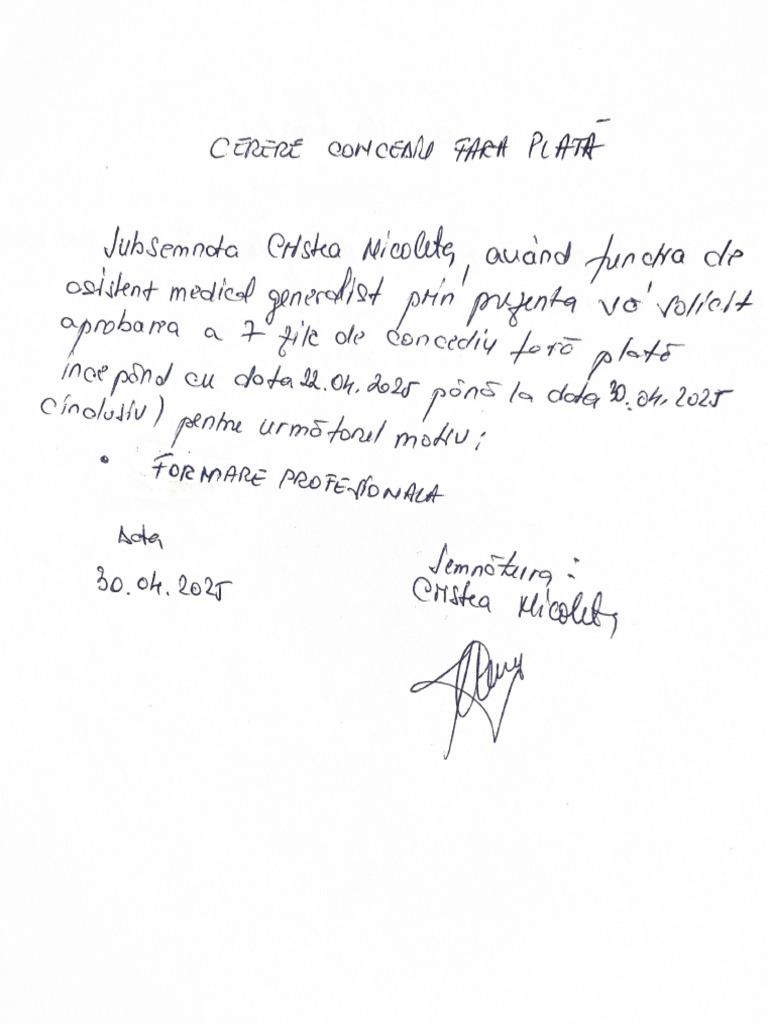 CERERE CONCEDIU FARA PLATĂ
Subsemnata Cristea Nicoleta, având funcția de
asistent medical generalist prin prezenta vă solicit
aprobarea a 7 zile de concediu fără plată
începând cu data 22.04.2025 până la data 30.04.2025
(inclusiv) pentru următorul motiv:
• FORMARE PROFESIONALA
Data
30.04.2025
Semnătura:
Cristea Nicoleta